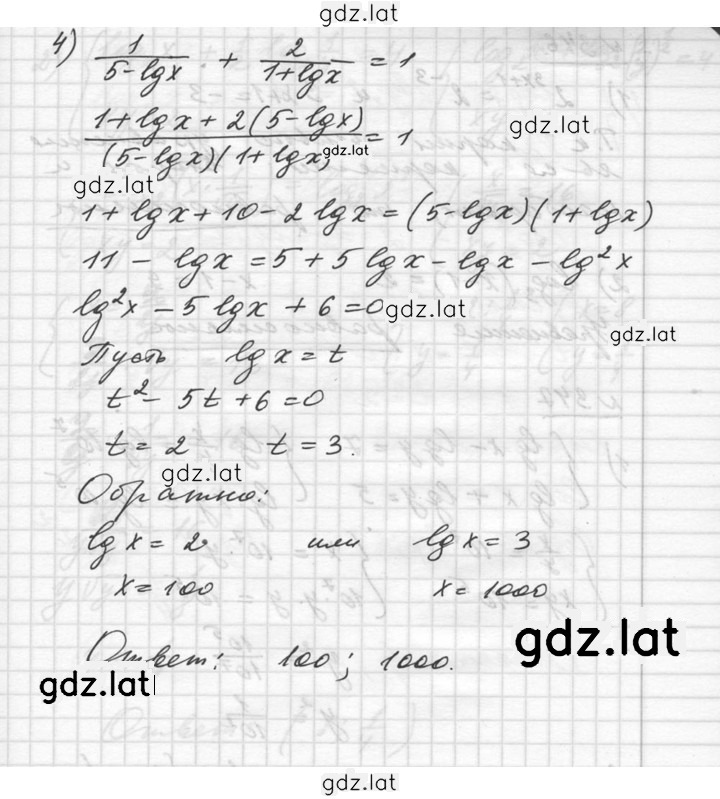 gdz.lat
4) 1/(5-lgx) + 2/(1+lgx) = 1
(1+lgx+2(5-lgx))/((5-lgx)(1+lgx)) = 1
gdz.lat
gdz.lat
gdz.lat
1+lgx+10-2lgx=(5-lgx)(1+lgx)
11-lgx=5+5lgx-lgx-lg²x
lg²x-5lgx+6=0
gdz.lat
gdz.lat
Пусть lgx=t
t²-5t+6=0
t=2 t=3.
gdz.lat
Обратно:
lgx=2 или lgx=3
x=100 x=1000
Ответ: 100; 1000.
gdz.lat
gdz.lat
gdz.lat